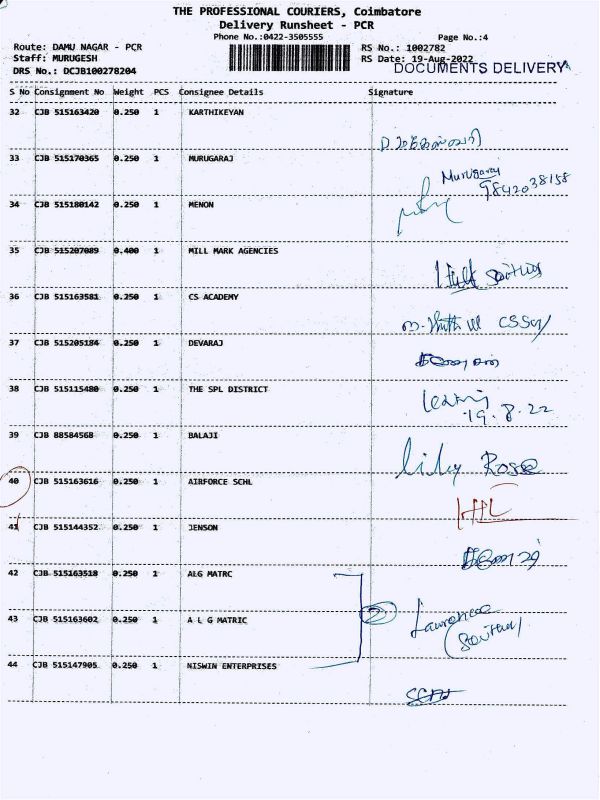 THE PROFESSIONAL COURIERS, Coimbatore
Delivery Runsheet - PCR
Phone No.:0422-3505555
Page No.:4
Route: DAMU NAGAR - PCR
RS No.: 1002782
Staff: MURUGESH
RS Date: 19-Aug-2022
DRS No.: DCJB100278204
DOCUMENTS DELIVERY
S No Consignment No Weight PCS Consignee Details Signature
32 CJB 515163420 0.250 1 KARTHIKEYAN
33 CJB 515170365 0.250 1 MURUGARAJ
Murugaraj
9842038158
34 CJB 515180142 0.250 1 MENON
35 CJB 515207089 0.400 1 MILL MARK AGENCIES
36 CJB 515163581 0.250 1 CS ACADEMY
37 CJB 515205184 0.250 1 DEVARAJ
38 CJB 515115480 0.250 1 THE SPL DISTRICT
19.8.22
39 CJB 88584568 0.250 1 BALAJI
Lily Rose
40 CJB 515163616 0.250 1 AIRFORCE SCHL
41 CJB 515144352 0.250 1 JENSON
42 CJB 515163518 0.250 1 ALG MATRC
2
43 CJB 515163602 0.250 1 A L G MATRIC
Lawrence
44 CJB 515147905 0.250 1 NISWIN ENTERPRISES